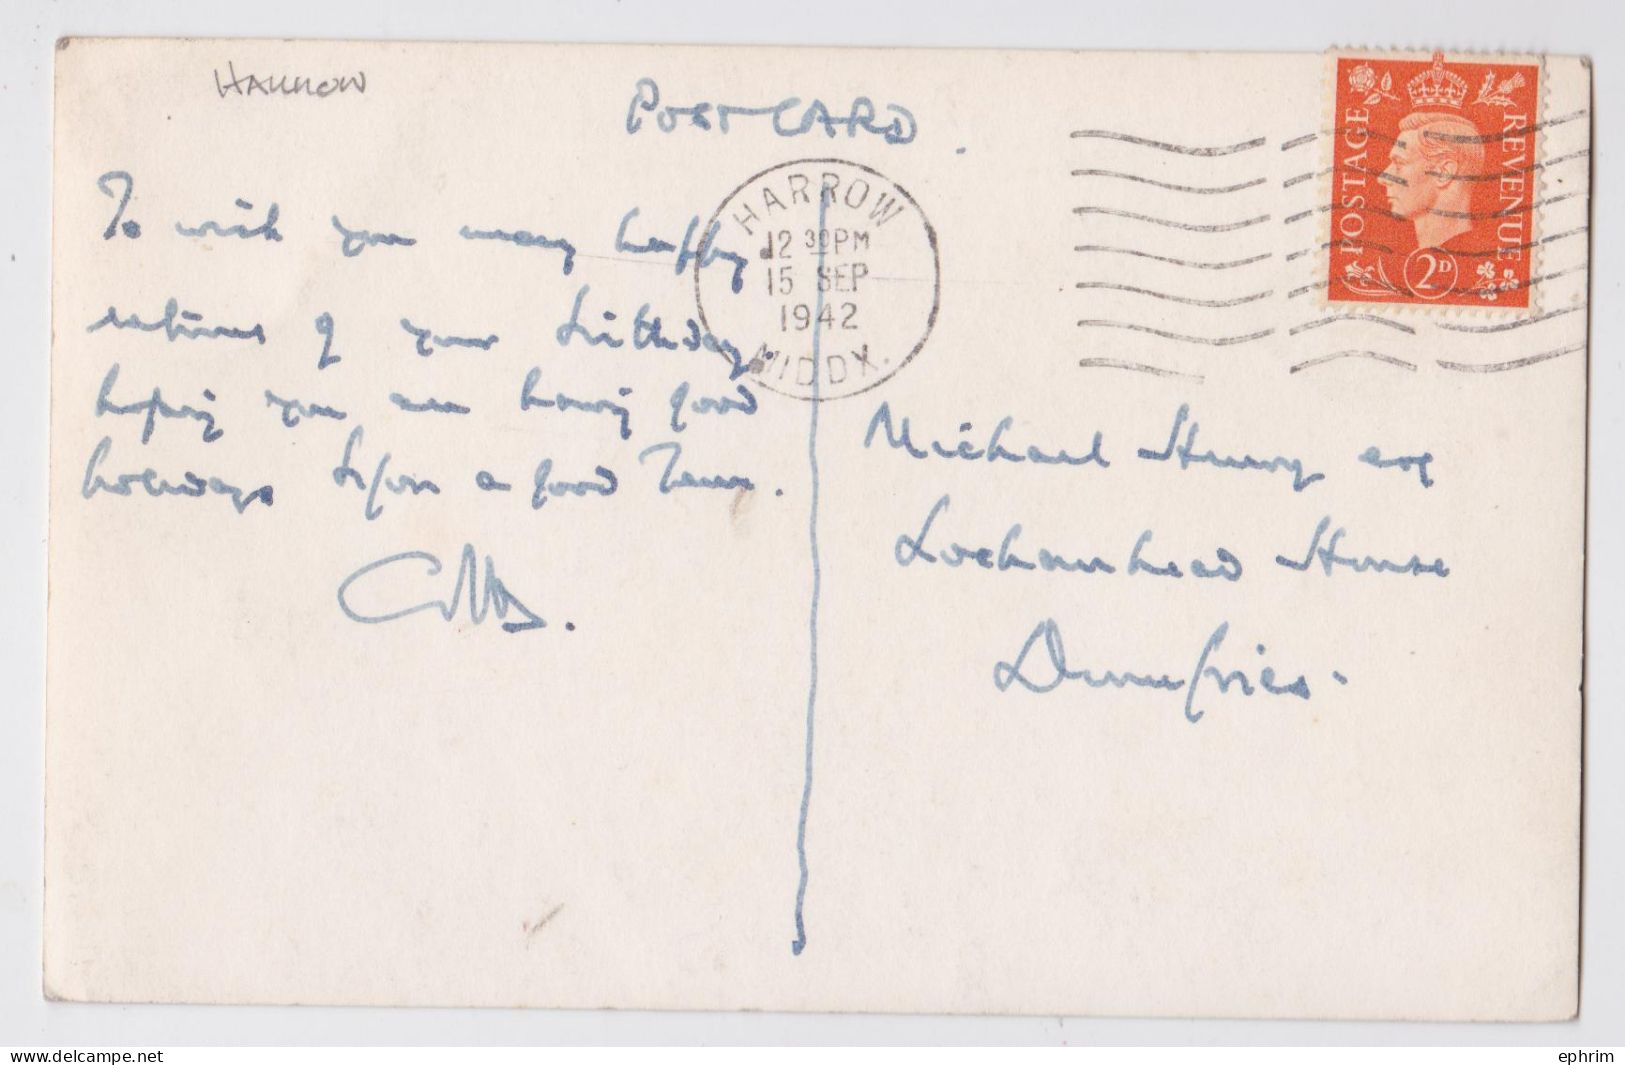 HARROW
POST CARD.
To wish you many happy
returns of your birthday.
hoping you are having good
holidays before a good Term.
HARROW
12 30 PM
15 SEP
1942
MIDDX.
POSTAGE
REVENUE
2D
Michael Henry esq
Lochanhead House
Dumfries.
ephrim